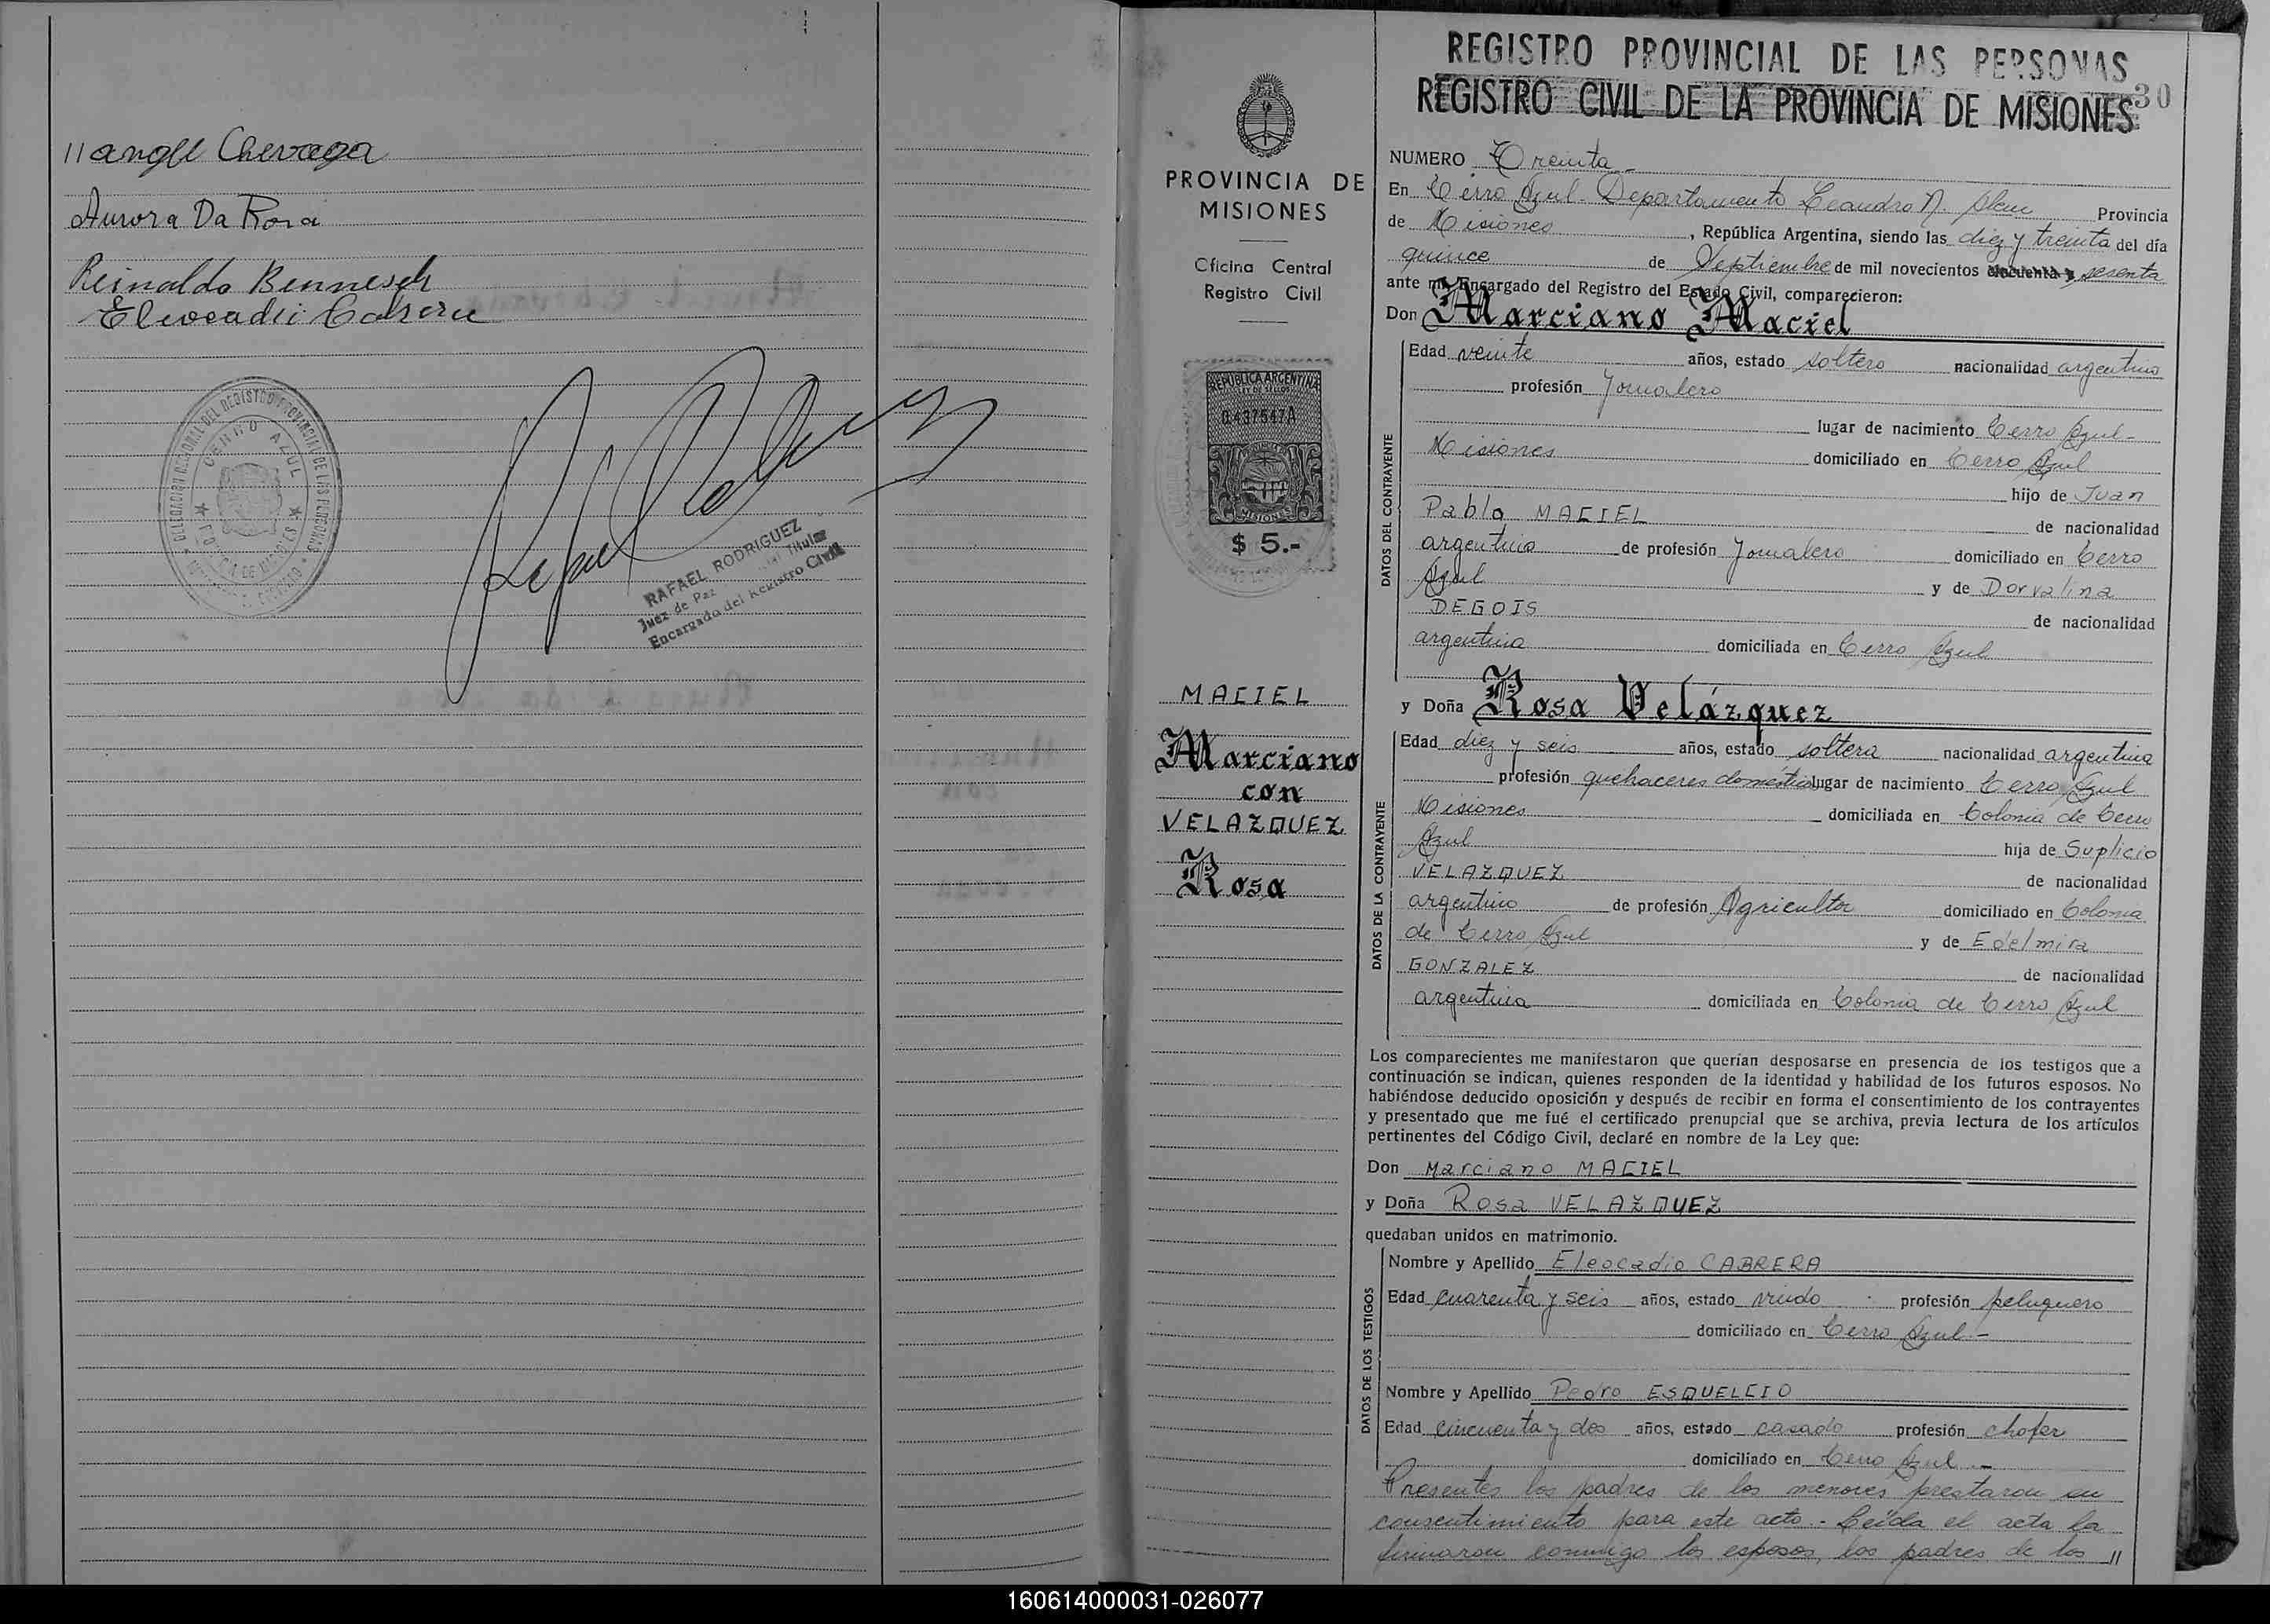 // angel Chevaga
Aurora Da Rosa
Reinaldo Bennesch
Eleocadio Cabrera
DELEGACION REGIONAL DEL REGISTRO PROVINCIAL DE LAS PERSONAS
CERRO AZUL
RAFAEL RODRIGUEZ
Juez de Paz Titular
Encargado del Registro Civil
PROVINCIA DE
MISIONES
Oficina Central
Registro Civil
REPUBLICA ARGENTINA
LEY DE SELLOS
0.437547A
MISIONES
$ 5.-
MACIEL
Marciano
con
VELAZQUEZ
Rosa
REGISTRO PROVINCIAL DE LAS PERSONAS
REGISTRO CIVIL DE LA PROVINCIA DE MISIONES
30
NUMERO Treinta
En Cerro Azul - Departamento Leandro N. Alem Provincia
de Misiones, República Argentina, siendo las diez y treinta del día
quince de Septiembre de mil novecientos cincuenta y sesenta
ante mí, Encargado del Registro del Estado Civil, comparecieron:
Don Marciano Maciel
DATOS DEL CONTRAYENTE
Edad veinte años, estado soltero nacionalidad argentino
profesión Jornalero
lugar de nacimiento Cerro Azul -
Misiones domiciliado en Cerro Azul
hijo de Juan
Pablo MACIEL de nacionalidad
argentino de profesión Jornalero domiciliado en Cerro
Azul y de Dorvalina
DEGOIS de nacionalidad
argentina domiciliada en Cerro Azul
y Doña Rosa Velázquez
DATOS DE LA CONTRAYENTE
Edad diez y seis años, estado soltera nacionalidad argentina
profesión quehaceres domésticos lugar de nacimiento Cerro Azul
Misiones domiciliada en Colonia de Cerro
Azul hija de Suplicio
VELAZQUEZ de nacionalidad
argentino de profesión Agricultor domiciliado en Colonia
de Cerro Azul y de Edelmira
GONZALEZ de nacionalidad
argentina domiciliada en Colonia de Cerro Azul
Los comparecientes me manifestaron que querían desposarse en presencia de los testigos que a
continuación se indican, quienes responden de la identidad y habilidad de los futuros esposos. No
habiéndose deducido oposición y después de recibir en forma el consentimiento de los contrayentes
y presentado que me fué el certificado prenupcial que se archiva, previa lectura de los artículos
pertinentes del Código Civil, declaré en nombre de la Ley que:
Don Marciano MACIEL
y Doña Rosa VELAZQUEZ
quedaban unidos en matrimonio.
DATOS DE LOS TESTIGOS
Nombre y Apellido Eleocadio CABRERA
Edad cuarenta y seis años, estado viudo profesión peluquero
domiciliado en Cerro Azul -
Nombre y Apellido Pedro ESQUELCIO
Edad cincuenta y dos años, estado casado profesión chofer
domiciliado en Cerro Azul -
Presentes los padres de los menores prestaron su
consentimiento para este acto. - Leída el acta la
firmaron conmigo los esposos, los padres de los //
160614000031-026077